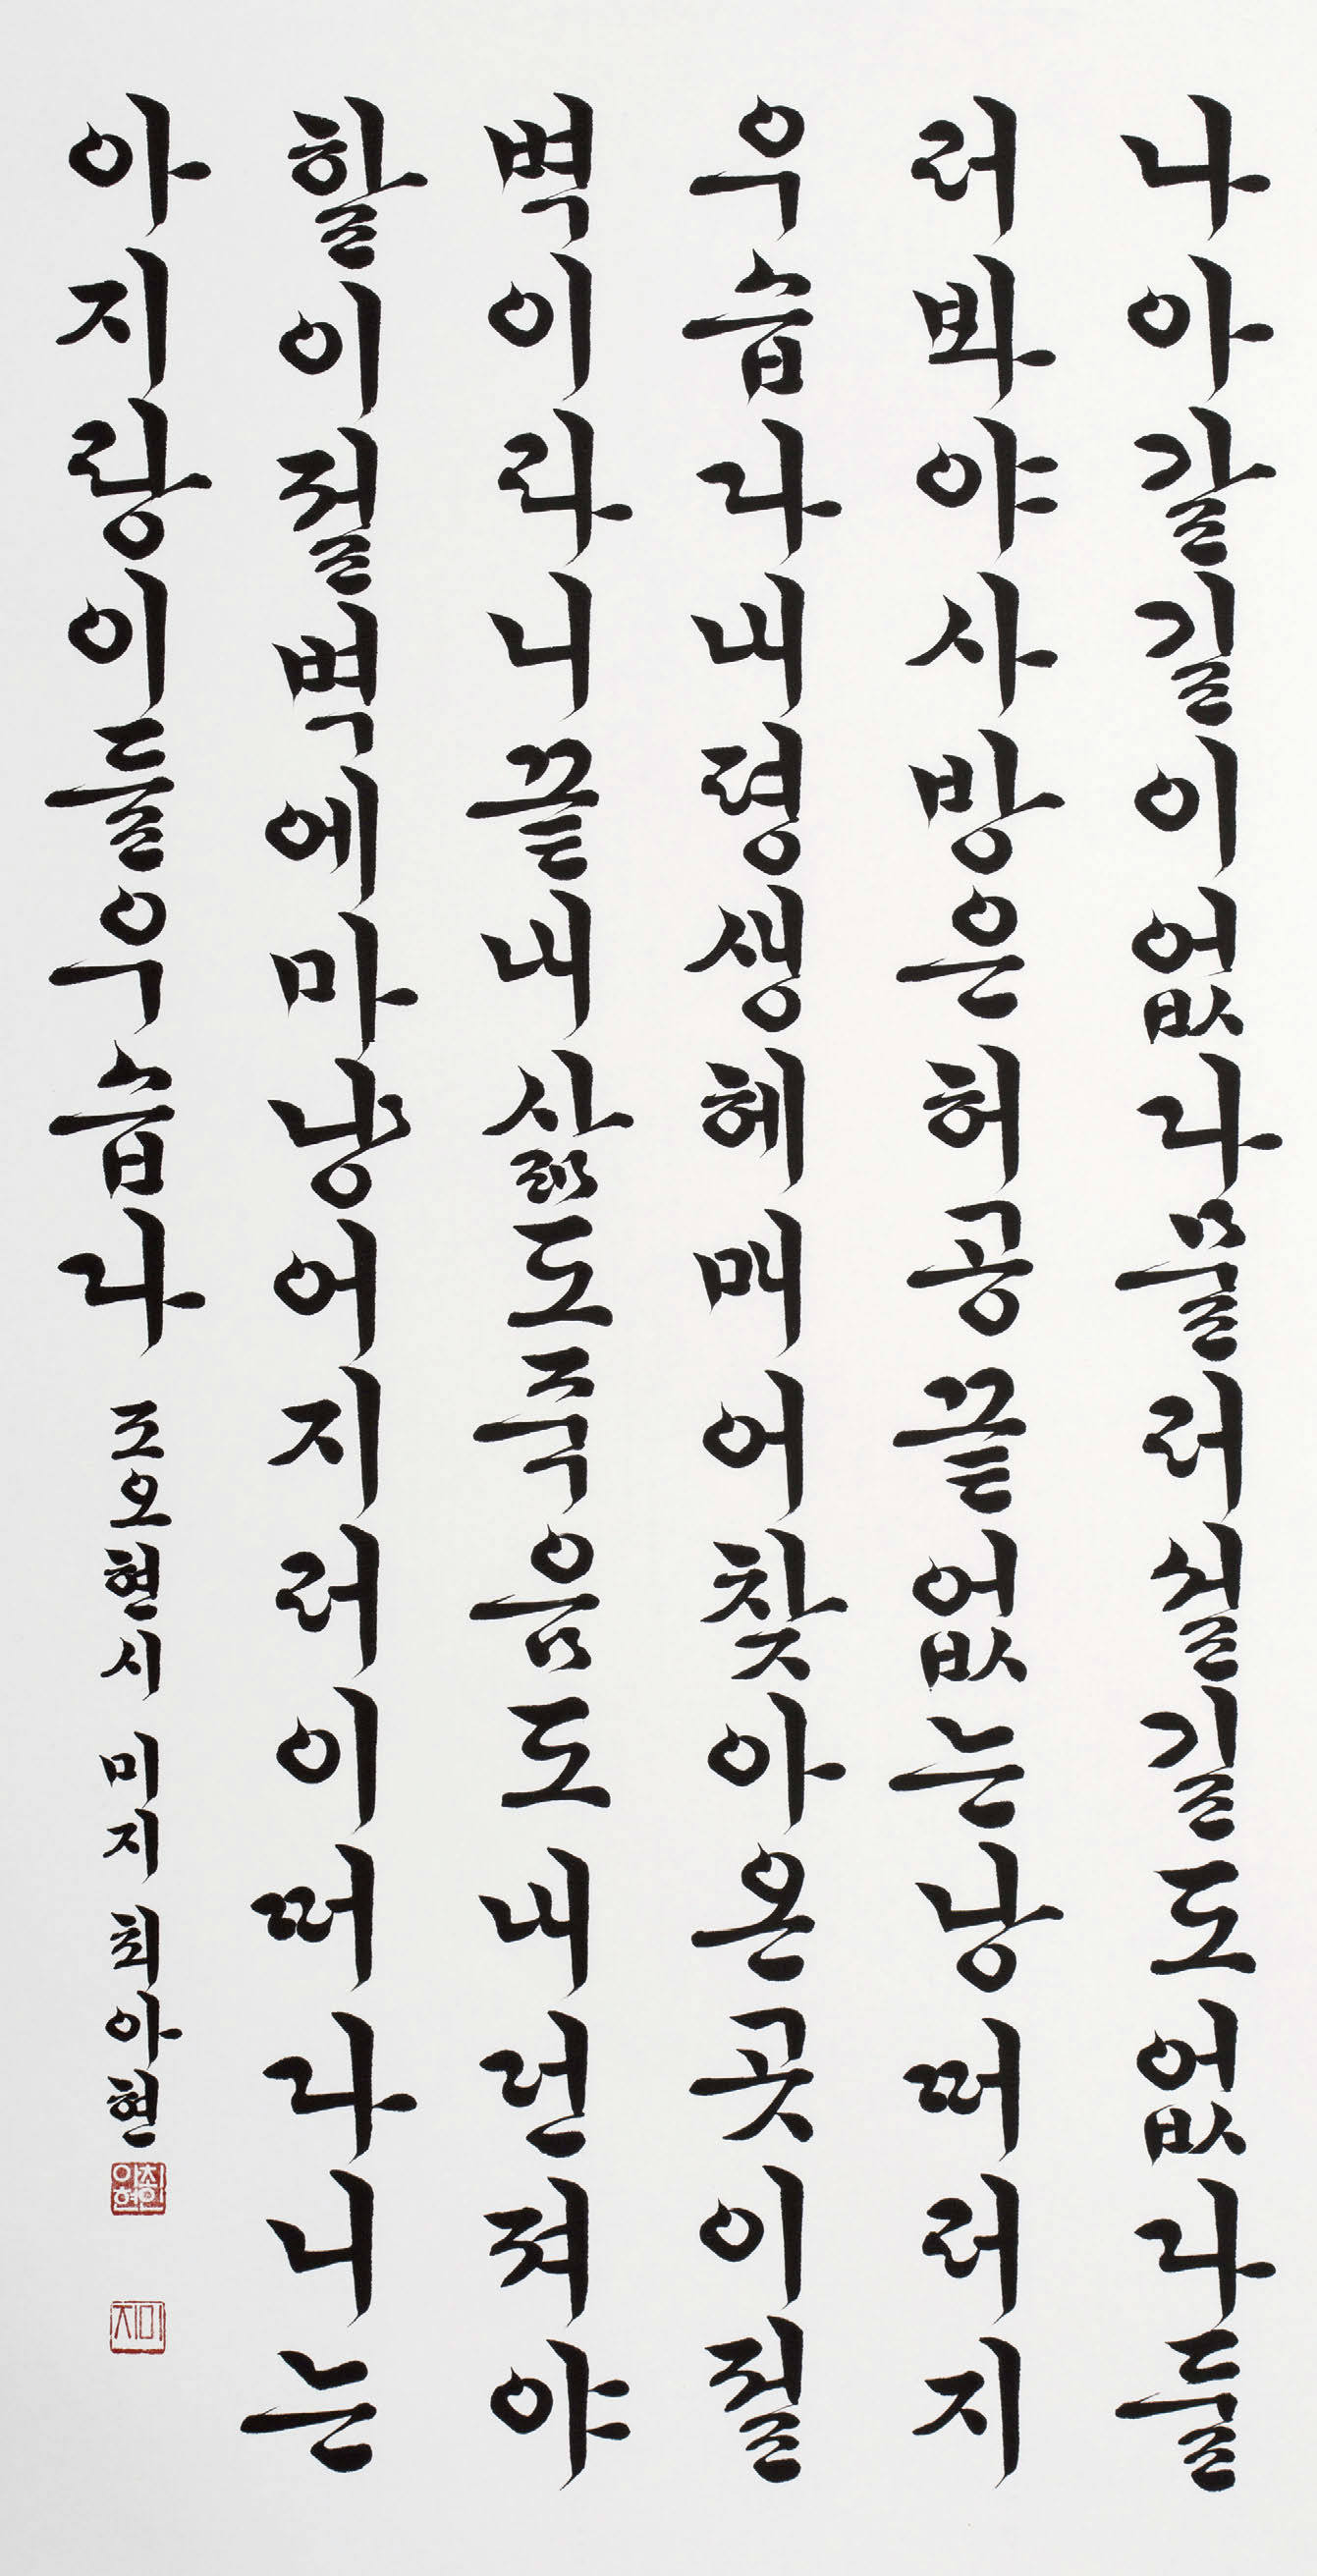 나아갈길이없다물러설길도없다둘
러봐야사방은허공끝없는낭떠러지
우습다내평생헤매어찾아온곳이절
벽이라니끝내삶도죽음도내던져야
할이절벽에마냥어지러이떠다니는
아지랑이들우습다 조오현시 미지 최아현
최아현
미지